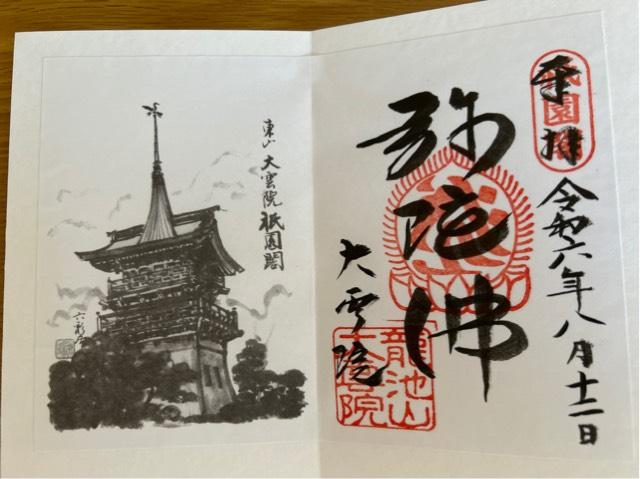 奉拝
祇園閣
令和六年八月十一日
弥陀佛
大雲院
龍池山
大雲院
東山 大雲院 祇園閣